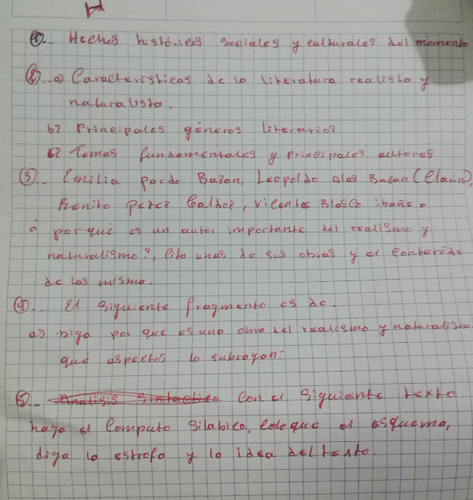 1. Hechos históricos sociales y culturales del momento
2. a) Características de la literatura realista y
naturalista.
b) Principales géneros literarios
c) Temas fundamentales y principales autores
3. Emilia pardo Bazan, Leopoldo alas Bazan (Clarin)
Benito perez Galdoz, vicente Blasco ibañe
a por qué es un autor importante del realismo y
naturalismo?, Cita unas de sus obras y el Contenido
de las misma.
4. El siguiente fragmento es de.
a) Diga por que es una obra del realismo y naturalism
qué aspectos lo subrayan:
5. Analisis Sintactico Con el siguiente texto
haga el Computo Silabico, Coloque el esquema,
diga la estrofa y la idea del texto.